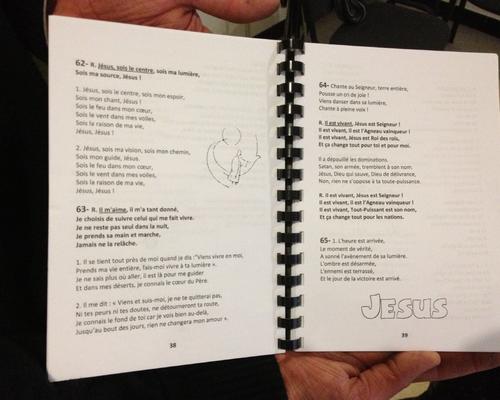 62- R. Jésus, sois le centre, sois ma lumière,
Sois ma source, Jésus !
1. Jésus, sois le centre, sois mon espoir,
Sois mon chant, Jésus !
Sois le feu dans mon cœur,
Sois le vent dans mes voiles,
Sois la raison de ma vie,
Jésus, Jésus !
2. Jésus, sois ma vision, sois mon chemin,
Sois mon guide, Jésus.
Sois le feu dans mon cœur,
Sois le vent dans mes voiles,
Sois la raison de ma vie,
Jésus, Jésus !
63- R. Il m'aime, il m'a tant donné,
Je choisis de suivre celui qui me fait vivre.
Je ne reste pas seul dans la nuit,
Je prends sa main et marche,
Jamais ne la relâche.
1. Il se tient tout près de moi quand je dis : "Viens vivre en moi,
Prends ma vie entière, fais-moi vivre à ta lumière ».
Je ne sais plus où aller, il est là pour me guider
Et dans mes déserts, je connais le cœur du Père.
2. Il me dit : « Viens et suis-moi, je ne te quitterai pas,
Ni tes peurs ni tes doutes, ne détourneront ta route,
Je connais le fond de toi car je vois bien au-delà,
Jusqu'au bout des jours, rien ne changera mon amour ».
38
64- Chante au Seigneur, terre entière,
Pousse un cri de joie !
Viens danser dans sa lumière,
Chante à pleine voix !
R. Il est vivant, Jésus est Seigneur !
Il est vivant, il est l'Agneau vainqueur !
Il est vivant, Jésus est Roi des rois,
Et ça change tout pour toi et pour moi.
Il a dépouillé les dominations.
Satan, son armée, tremblent à son nom.
Jésus, Dieu qui sauve, Dieu de délivrance,
Non, rien ne s'oppose à ta toute-puissance.
R. Il est vivant, Jésus est Seigneur !
Il est vivant, il est l'Agneau vainqueur !
Il est vivant, Tout-Puissant est son nom,
Et ça change tout pour les nations.
65- 1. L'heure est arrivée,
Le moment de vérité,
A sonné l'avènement de sa lumière.
L'ombre est désarmée,
L'ennemi est terrassé,
Et le jour de la victoire est arrivé.
JESUS
39